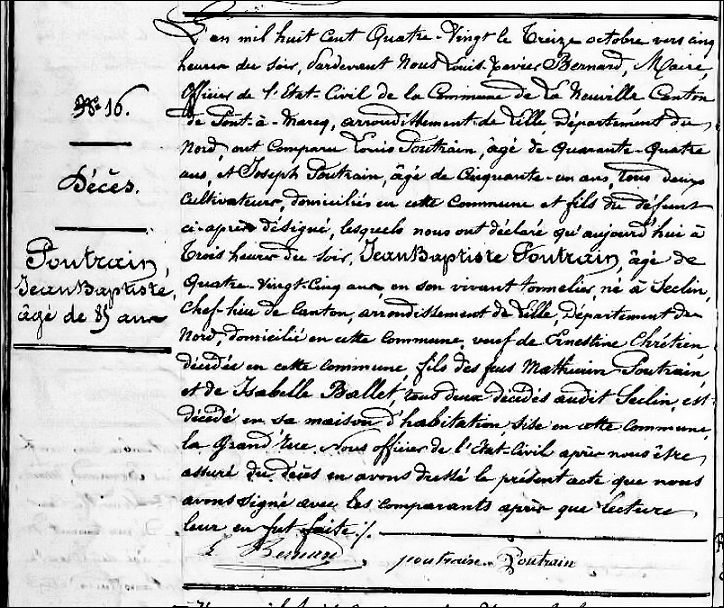 N° 16.
Décès.
Poutrain,
Jean Baptiste,
âgé de 85 ans
L'an mil huit cent Quatre-Vingt le Treize octobre vers cinq
heures du soir, Pardevant Nous Louis Xavier Bernard, Maire,
Officier de l'Etat-Civil de la Commune de La Neuville Canton
de Pont-à-Marcq, arrondissement de Lille, Département du
Nord, ont comparu Louis Poutrain, âgé de Quarante-Quatre
ans, et Joseph Poutrain, âgé de Cinquante-un ans, tous deux
Cultivateurs, domiciliés en cette Commune et fils du défunt
ci-après désigné, lesquels nous ont déclaré qu'aujourd'hui à
Trois heures du soir, Jean Baptiste Poutrain, âgé de
Quatre-Vingt-Cinq ans, en son vivant tonnelier, né à Seclin,
Chef-lieu de Canton, arrondissement de Lille, Département du
Nord, domicilié en cette commune, veuf de Ernestine Chrétien,
décédée en cette commune, fils des feus Mathurin Poutrain,
et de Isabelle Ballet, tous deux décédés audit Seclin, est
décédé en sa maison d'habitation, sise en cette commune,
la Grand'Rue. Nous officier de l'Etat-Civil après nous être
assuré du décès en avons dressé le présent acte que nous
avons signé avec les comparants après que lecture
leur en fut faite ./.
L Bernard poutrain Poutrain